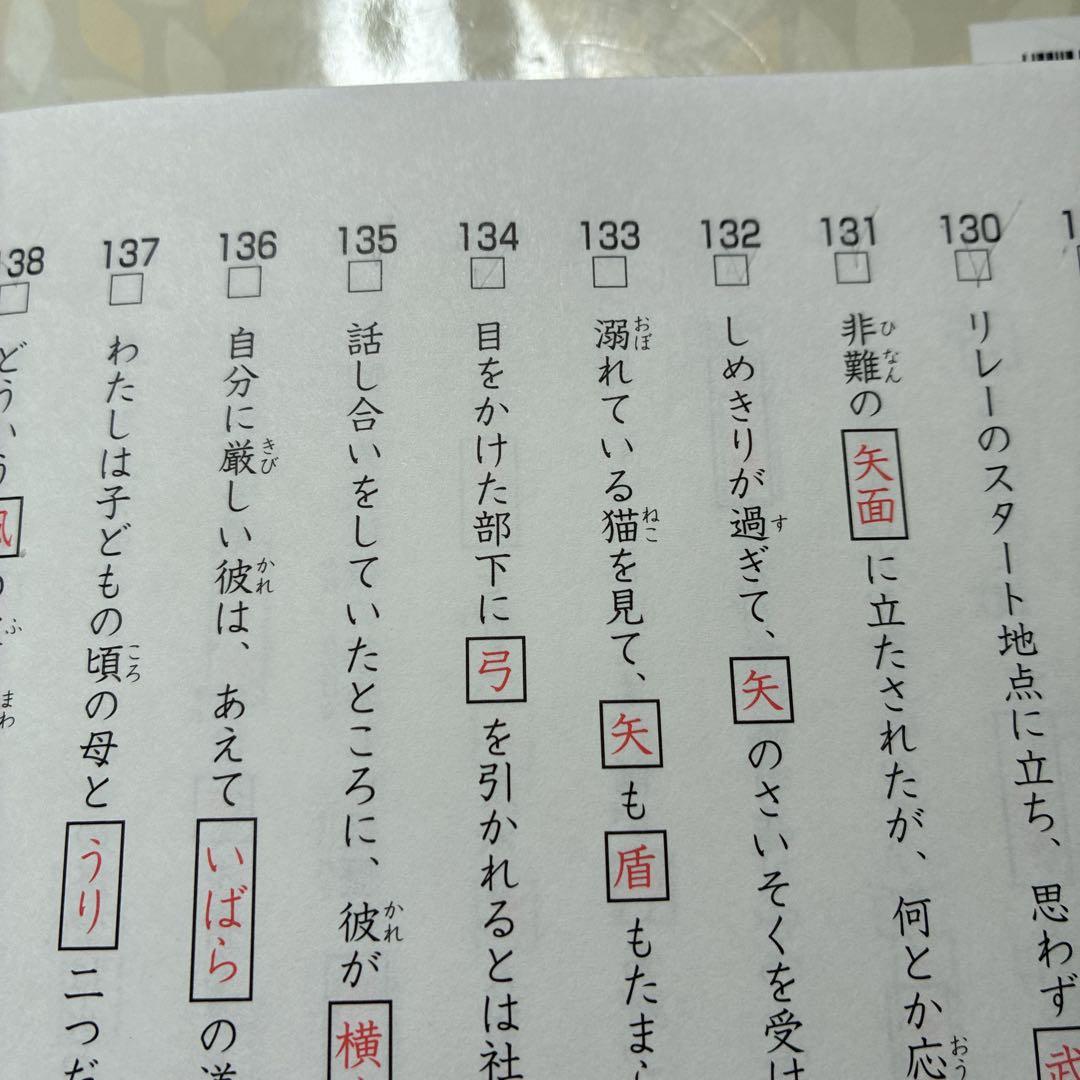 130
リレーのスタート地点に立ち、思わず武
131
非難の矢面に立たされたが、何とか応
ひなん
おう
132
しめきりが過ぎて、矢のさいそくを受け
す
133
溺れている猫を見て、矢も盾もたまら
おぼ
ねこ
134
目をかけた部下に弓を引かれるとは社
135
話し合いをしていたところに、彼が横
かれ
136
自分に厳しい彼は、あえていばらの道
きび
かれ
137
わたしは子どもの頃の母とうり二つだ
ころ
138
どういう風の
ふ
まわ